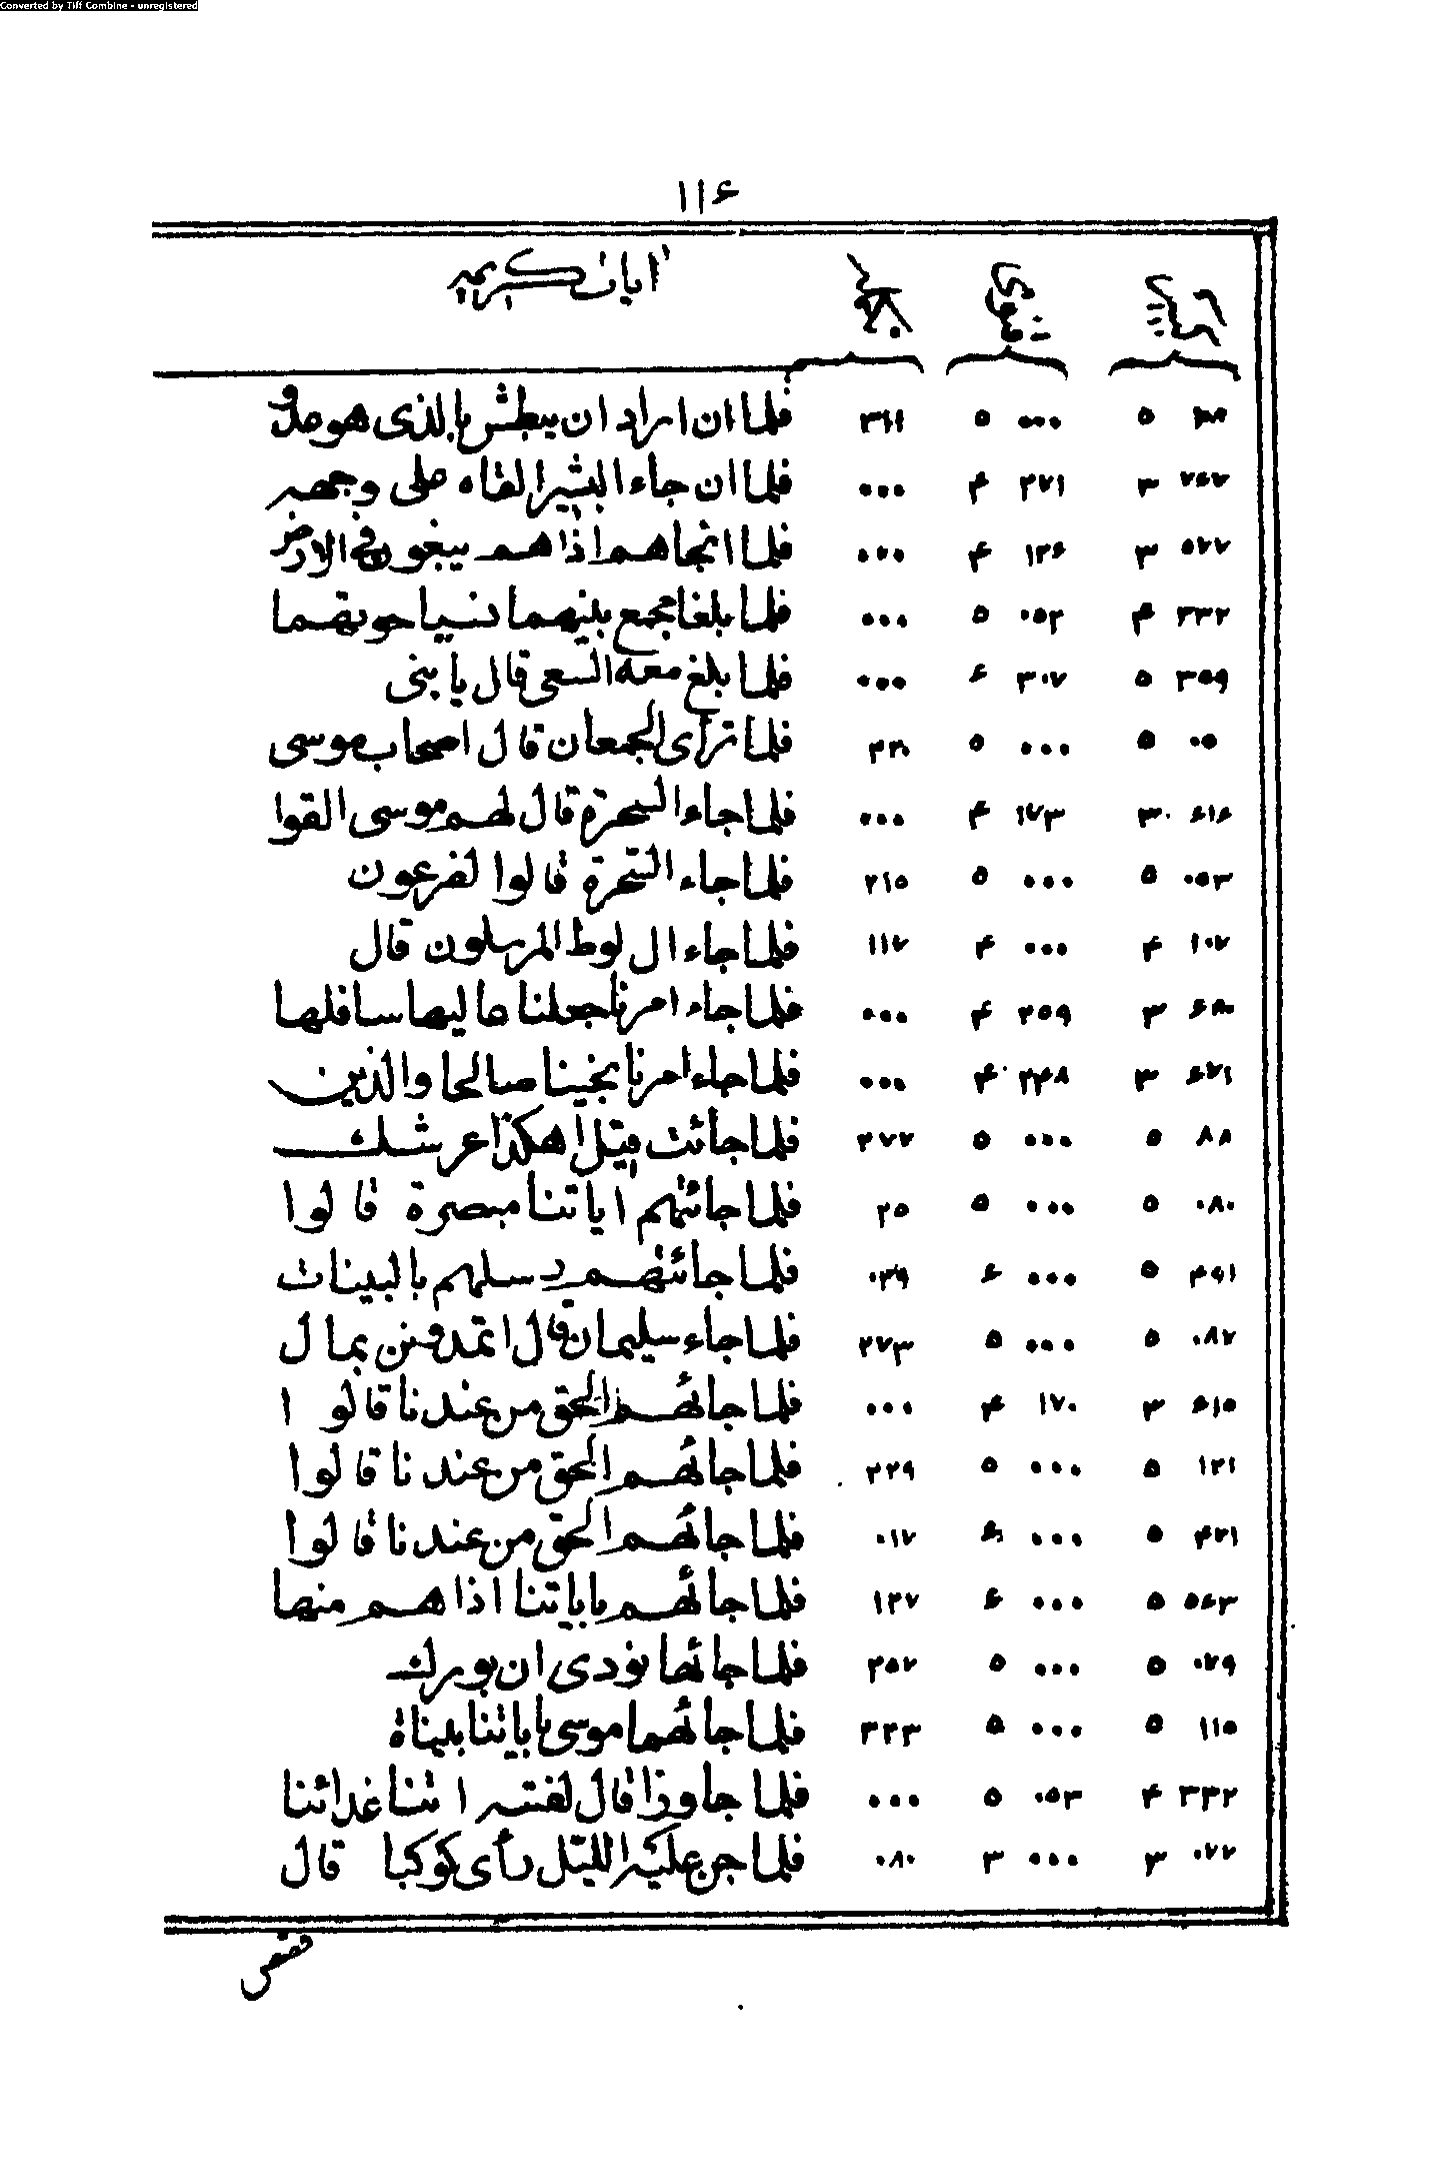 Converted by Tiff Combine - unregistered
۱۱۶
ایات کریمه
۵ ۰۰۰ ۵ ۳۶۶ فلما ان اراد ان یبطش بالذی هو عدو
۷۶۷ ۳ ۲۷۱ ۴ ۰۰۰ فلما ان جاء البشیر القاه علی وجهه
۵۷۷ ۳ ۱۲۶ ۴ ۰۰۰ فلما انجاهم اذا هم یبغون فی الارض
۳۳۲ ۴ ۰۵۲ ۵ ۰۰۰ فلما بلغا مجمع بینهما نسیا حوتهما
۳۵۹ ۵ ۳۰۷ ۶ ۰۰۰ فلما بلغ معه السعی قال یا بنی
۰۵ ۵ ۰۰۰ ۵ ۲۲۰ فلما ترأی الجمعان قال اصحاب موسی
۶۱۶ ۳ ۱۷۳ ۴ ۰۰۰ فلما جاء السحرة قال لهم موسی القوا
۰۵۳ ۵ ۰۰۰ ۵ ۲۱۵ فلما جاء السحرة قالوا لفرعون
۱۰۷ ۴ ۰۰۰ ۴ ۱۱۷ فلما جاء ال لوط المرسلون قال
۶۸۰ ۳ ۲۵۹ ۴ ۰۰۰ فلما جاء امرنا جعلنا عالیها سافلها
۶۷۱ ۳ ۲۴۸ ۴ ۰۰۰ فلما جاء امرنا نجینا صالحا والذین
۸۸ ۵ ۰۰۰ ۵ ۲۷۲ فلما جائت قیل اهکذا عرشک
۰۸۰ ۵ ۰۰۰ ۵ ۲۵ فلما جائتهم ایاتنا مبصرة قالوا
۴۹۱ ۵ ۰۰۰ ۶ ۰۳۹ فلما جائتهم رسلهم بالبینات
۰۸۷ ۵ ۰۰۰ ۵ ۲۷۳ فلما جاء سلیمان قال اتمدونن بمال
۶۱۵ ۳ ۱۷۰ ۴ ۰۰۰ فلما جائهم الحق من عندنا قالوا
۱۲۱ ۵ ۰۰۰ ۵ ۲۲۹ فلما جائهم الحق من عندنا قالوا
۴۷۱ ۵ ۰۰۰ ۶ ۰۱۷ فلما جائهم الحق من عندنا قالوا
۵۶۳ ۵ ۰۰۰ ۶ ۱۲۷ فلما جائهم بایاتنا اذا هم منها
۰۷۹ ۵ ۰۰۰ ۵ ۲۵۷ فلما جائها نودی ان بورک
۱۱۵ ۵ ۰۰۰ ۵ ۳۲۳ فلما جائهم موسی بایاتنا بینات
۳۳۲ ۴ ۰۵۳ ۵ ۰۰۰ فلما جاوزا قال لفتیه اتنا غدائنا
۰۷۷ ۳ ۰۰۰ ۳ ۰۸۰ فلما جن علیه اللیل رأی کوکبا قال